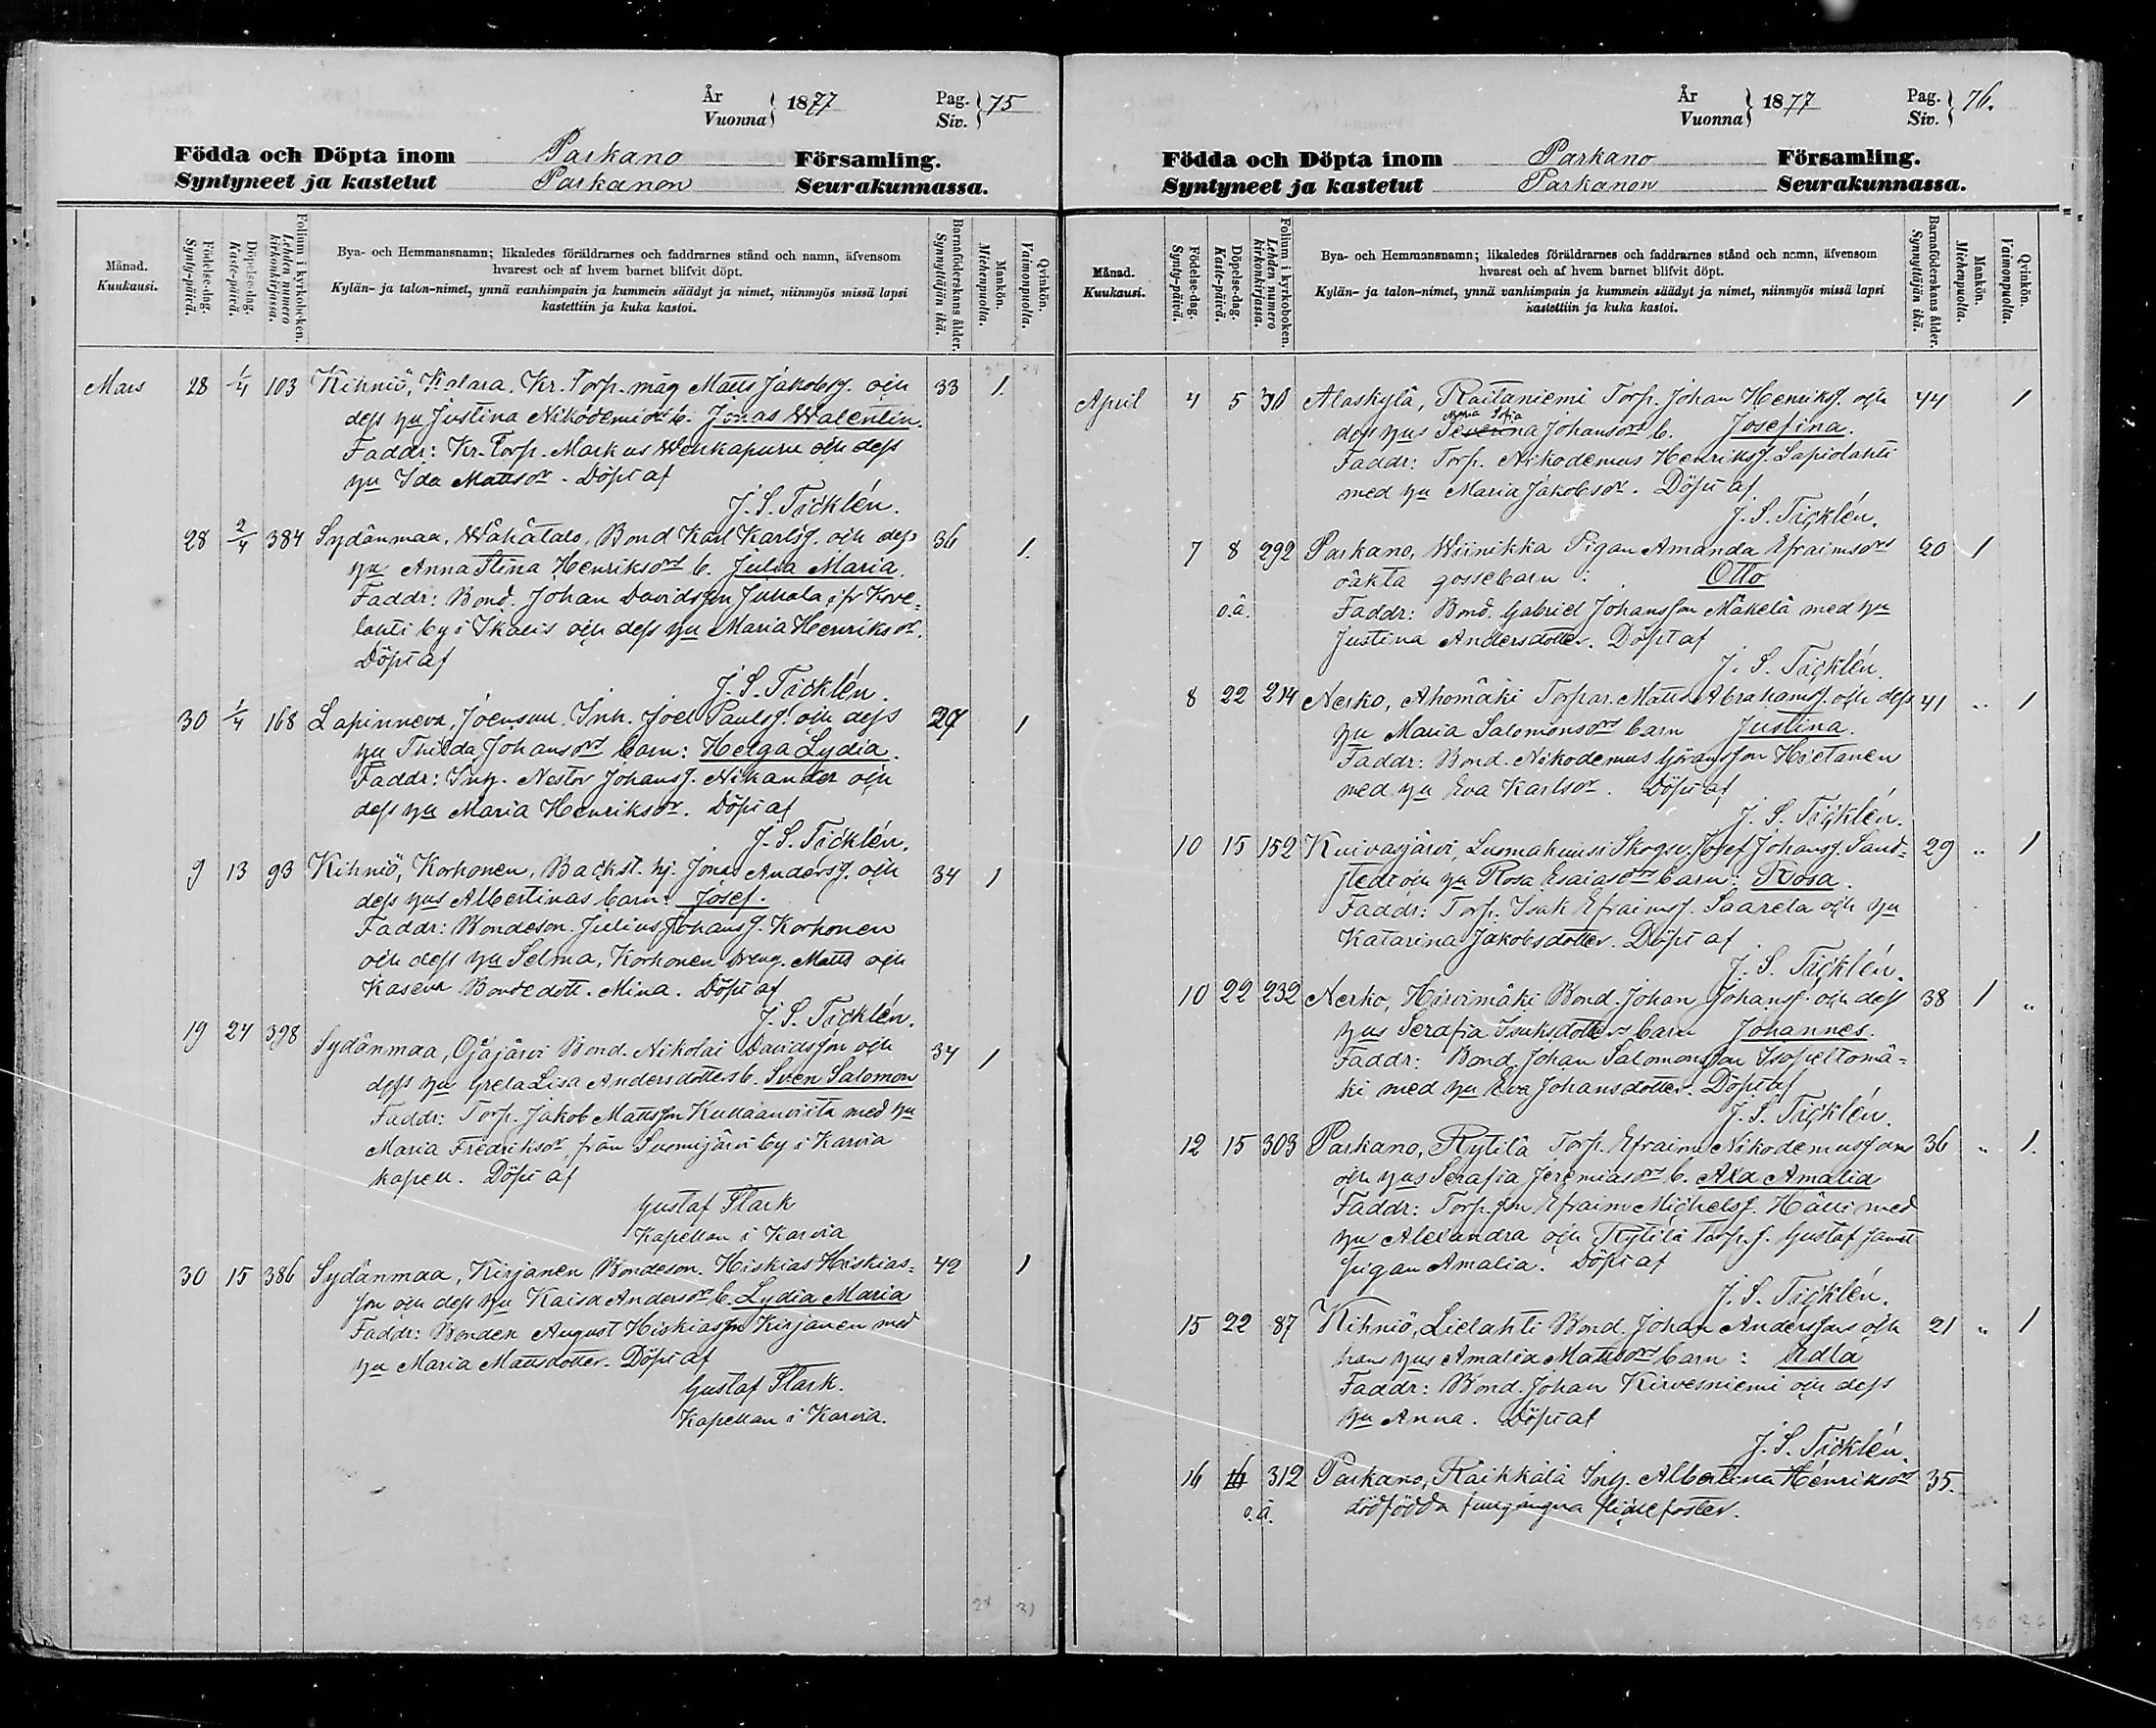 År
Vuonna } 1877 Pag.
Siv. } 75
Födda och Döpta inom Parkano Församling.
Syntyneet ja kastetut Parkanon Seurakunnassa.
Månad.
Kuukausi.
Födelse-dag.
Synty-päivä.
Döpelse-dag.
Kaste-päivä.
Folium i kyrkoboken.
Lehden numero
kirkonkirjassa.
Bya- och Hemmansnamn; likaledes föräldrarnes och faddrarnes stånd och namn, äfvensom
hvarest och af hvem barnet blifvit döpt.
Kylän- ja talon-nimet, ynnä vanhimpain ja kummein säädyt ja nimet, niinmyös missä lapsi
kastettiin ja kuka kastoi.
Barnaföderskans ålder.
Synnyttäjän ikä.
Mankön.
Miehenpuolia.
Qvinkön.
Vaimonpuolia.
Mars 28 1/4 103 Kihniö, Katara. Kr. Torp. måg Matts Jakobsf. och 33 1.
dess hu Justina Nikodemidrs b. Jonas Walentin.
Faddr: Kr. Torp. Markus Wehkapuru och dess
hu Ida Mattsdr. Döpt af
J. S. Ticklén.
28 2/4 384 Sydänmaa, Wähätalo, Bond Karl Karlsf. och dess 36 1.
hu Anna Stina Henriksdrs b. Julia Maria.
Faddr: Bond. Johan Davidsson Juhala ifr Kove=
lahti by i Ikalis och dess hu Maria Henriksdr.
Döpt af
J. S. Ticklén.
30 1/4 168 Lapinneva, Joensuu. Inh. Joel Paulsf. och dess 27 1
hu Thilda Johansdrs barn: Helga Lydia.
Faddr: Inh. Nestor Johansf. Nikander och
dess hu Maria Henriksdr. Döpt af
J. S. Ticklén.
9 13 93 Kihniö, Korhonen, Backst. hj. Jonas Andersf. och 34 1
dess hus Albertinas barn: Josef.
Faddr: Bondeson. Julius Johansf. Korhonen
och dess hu Selma, Korhonen dreng. Matts och
Kaseva Bondedott. Mina. Döpt af
J. S. Ticklén.
19 24 398 Sydänmaa, Ojajärvi Bond. Nikolai Davidsson och 34 1
dess hu Greta Lisa Andersdotters b. Sven Salomon
Faddr: Torp. Jakob Mattsson Kullaanviita med hu
Maria Fredriksdr, från Suomijärvi by i Karvia
kapell. Döpt af
Gustaf Stark
Kapellan i Karvia
30 15 386 Sydänmaa, Kirjanen Bondeson. Hiskias Hiskias= 42 1
son och dess hu Kaisa Andersdrs b. Lydia Maria
Faddr: Bonden August Hiskiasson Kirjanen med
hu Maria Mattsdotter. Döpt af
Gustaf Stark.
Kapellan i Karvia.
28 31
År
Vuonna } 1877 Pag.
Siv. } 76.
Födda och Döpta inom Parkano Församling.
Syntyneet ja kastetut Parkanon Seurakunnassa.
Månad.
Kuukausi.
Födelse-dag.
Synty-päivä.
Döpelse-dag.
Kaste-päivä.
Folium i kyrkoboken.
Lehden numero
kirkonkirjassa.
Bya- och Hemmansnamn; likaledes föräldrarnes och faddrarnes stånd och namn, äfvensom
hvarest och af hvem barnet blifvit döpt.
Kylän- ja talon-nimet, ynnä vanhimpain ja kummein säädyt ja nimet, niinmyös missä lapsi
kastettiin ja kuka kastoi.
Barnaföderskans ålder.
Synnyttäjän ikä.
Mankön.
Miehenpuolia.
Qvinkön.
Vaimonpuolia.
April 4 5 Alaskylä, Raitaniemi Torp. Johan Henriksf. och 44 1
Maria Sofia
dess hus Severina Johansdrs b. Josefina.
Faddr: Torp. Nikodemus Henriksf. Lapiolahti
med hu Maria Jakobsdr. Döpt af
J. S. Ticklén.
7 8 292 Parkano, Wiinikka Pigan Amanda Efraimsdrs 20 1
oäkta gossebarn: Otto
o.ä. Faddr: Bond. Gabriel Johansson Mäkelä med hu
Justina Andersdotter. Döpt af
J. S. Ticklén.
8 22 214 Nerko, Ahomäki Torpar. Matts Abrahamsf. och dess 41 „ 1
hu Maria Salomonsdrs barn Justina.
Faddr: Bond. Nikodemus Göransson Hietanen
med hu Eva Karlsdr. Döpt af
J. S. Ticklén.
10 15 152 Kuivasjärvi, Luomakuusi Skogsv. Josef Johansf. Sand= 29 „ 1
stedt och hu Rosa Esaiasdrs barn: Rosa.
Faddr: Torp. Isak Efraimsf. Saarela och hu
Katarina Jakobsdotter. Döpt af
J. S. Ticklén.
10 22 232 Nerko, Hirvimäki Bond. Johan Johansf. och dess 38 1 „
hus Serafia Isaksdotters barn Johannes.
Faddr: Bond. Johan Salomonsson Isopeltomä=
ki med hu Eva Johansdotter. Döpt af
J. S. Ticklén.
12 15 303 Parkano, Rytilä Torp. Efraim Nikodemussons 36 „ 1.
och hus Serafia Jeremiasdrs b. Alda Amalia
Faddr: Torp. son Efraim Michelsf. Hälli med
hu Alexandra och Rytilä torp. s. Gustaf samt
pigan Amalia. Döpt af
J. S. Ticklén.
15 22 87 Kihniö, Lielahti Bond. Johan Anderssons och 21 „ 1
hans hus Amalia Mattsdrs barn: Edla
Faddr: Bond. Johan Kirvesniemi och dess
hu Anna. Döpt af
J. S. Ticklén.
16 16 312 Parkano, Räikkälä Inh. Albertina Henriksdrs 35.
o.ä. dödfödda flickefoster.
30 36